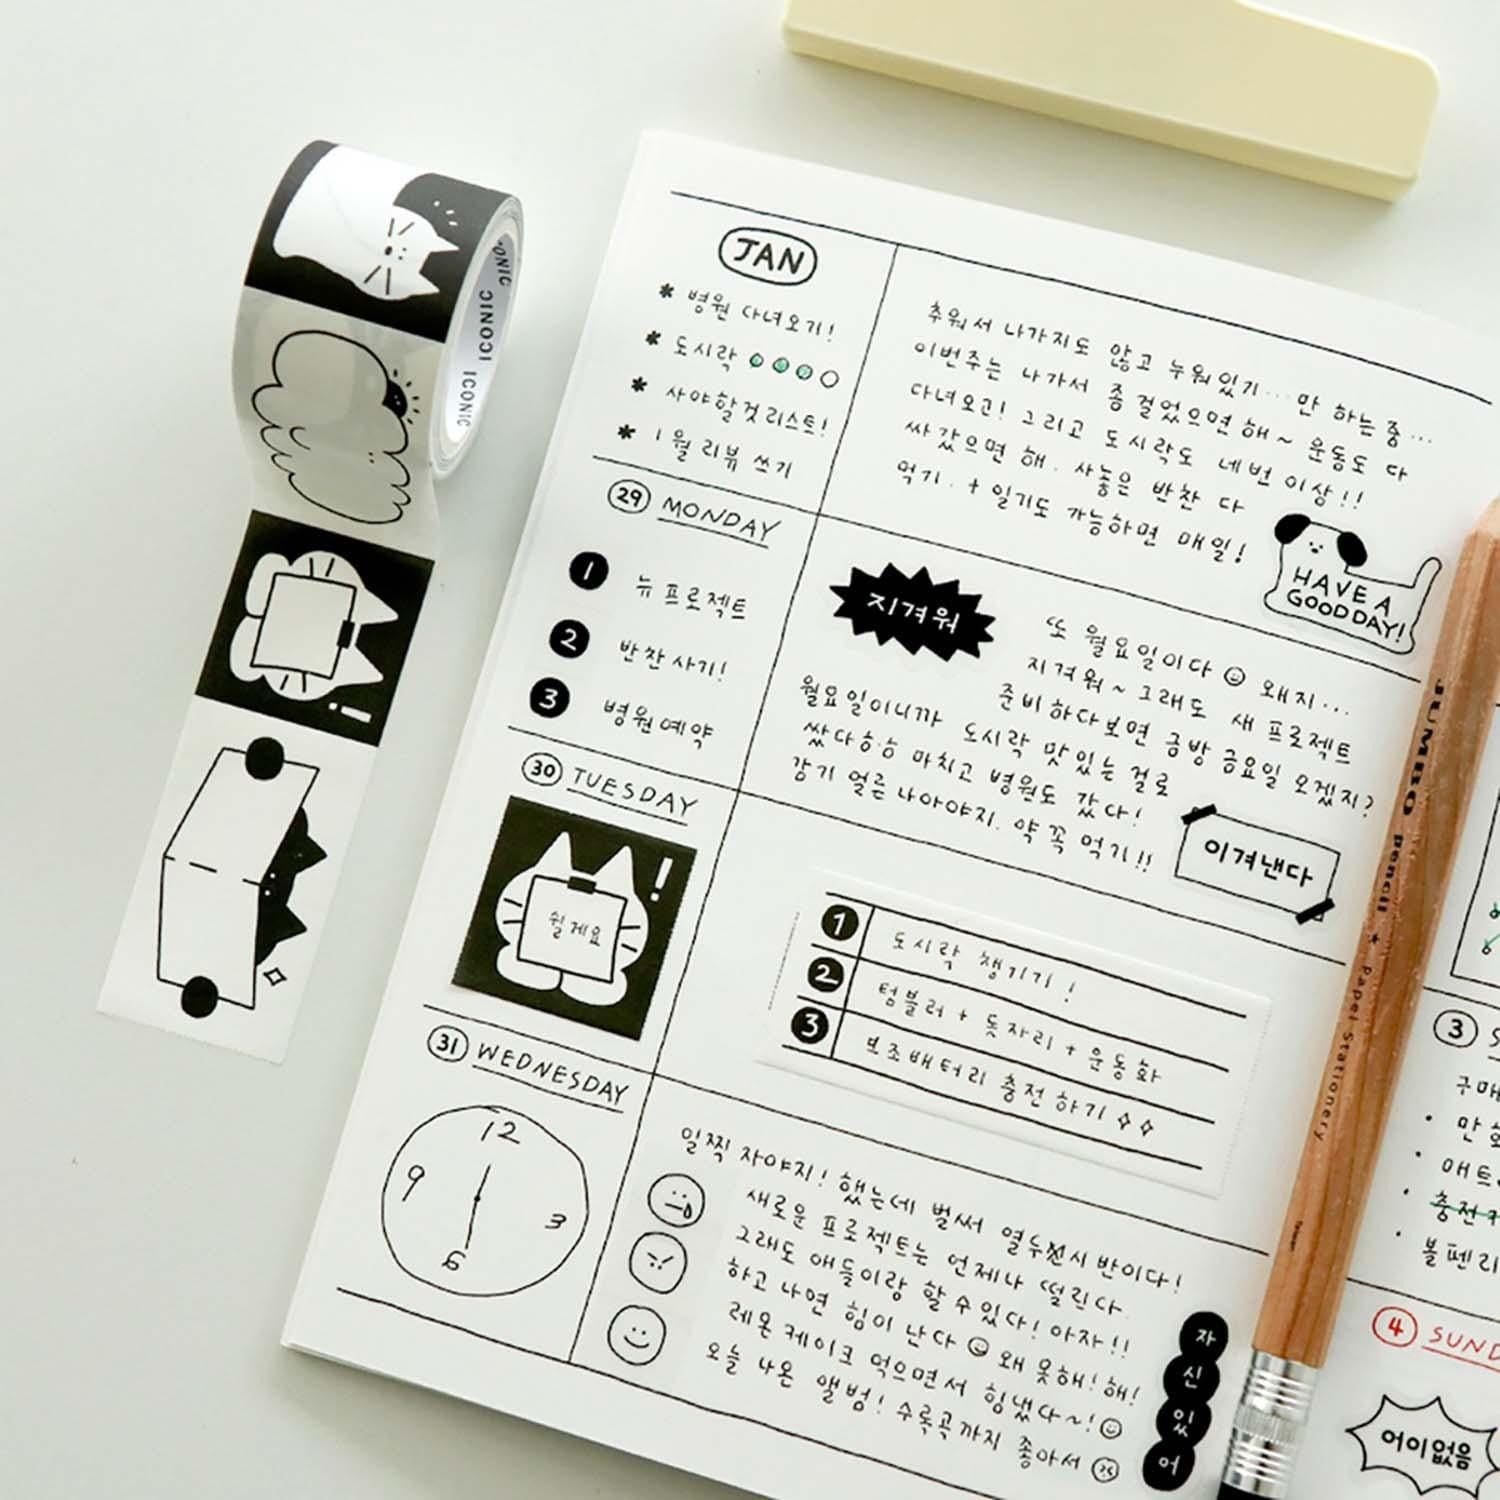 ICONIC ICONIC ICONIC
JAN
* 병원 다녀오기!
* 도시락
* 사야할것 리스트!
* 1월 리뷰 쓰기
추워서 나가지도 않고 누워있기... 만 하는 중...
이번주는 나가서 좀 걸었으면 해~ 운동도 다
다녀오고! 그리고 도시락도 네번 이상!!
싸갔으면 해. 사놓은 반찬 다
먹기. + 일기도 가능하면 매일!
HAVE A
GOOD DAY!
29 MONDAY
1 뉴 프로젝트
2 반찬 사기!
3 병원예약
지겨워
또 월요일이다 왜지...
지겨워~ 그래도 새 프로젝트
준비하다보면 금방 금요일 오겠지?
월요일이니까 도시락 맛있는 걸로
쌌다ㅎㅎ 마치고 병원도 갔다!
감기 얼른 나아야지. 약 꼭 먹기!!
이겨낸다
30 TUESDAY
쉴게요
1 도시락 챙기기!
2 텀블러 + 돗자리 + 운동화
3 보조배터리 충전 하기
31 WEDNESDAY
12
3
6
9
일찍 자야지! 했는데 벌써 열두시 반이다!
새로운 프로젝트는 언제나 떨린다
그래도 애들이랑 할 수 있다! 아자!!
하고 나면 힘이 난다 왜 못해! 해!
레몬 케이크 먹으면서 힘냈다~!
오늘 나온 앨범! 수록곡까지 좋아서
자
신
있
어
JUMBO pencil ★ Papel Stationery
3 S
구매
· 만
· 매트
· 충전
· 볼펜 리
4 SUND
어이없음